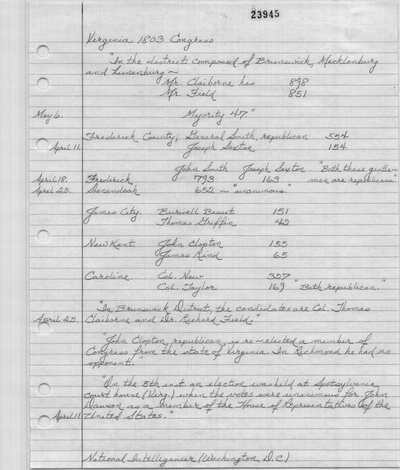 23945
Virginia 1803 Congress
"In the district composed of Brunswick, Mecklenburg
and Lunenburg —
Mr. Claiborne has 898
Mr. Field 851
May 6. Majority 47."
Frederick County, General Smith, republican 554
April 11. Joseph Sexton 154
John Smith Joseph Sexton "Both these gentle-
April 18. Frederick 793 163 men are republicans."
April 25. Shenandoah 652 ~ "unanimous."
James City. Burwell Basset 151
Thomas Griffin 42
New Kent. John Clopton 155
James Rind 65
Caroline. Col. New 357
Col. Taylor 169 "Both republican."
"In Brunswick District, the candidates are Col. Thomas
April 25. Claiborne and Dr. Richard Field."
"John Clopton, republican, is re-elected a member of
Congress from the state of Virginia. In Richmond he had no
opponent."
"On the 5th inst. an election was held at Spotsylvania
court house (Virg.) when the votes were unanimous for John
Dawson as a member of the House of Representatives of the
April 11 United States."
National Intelligencer (Washington, D.C.)